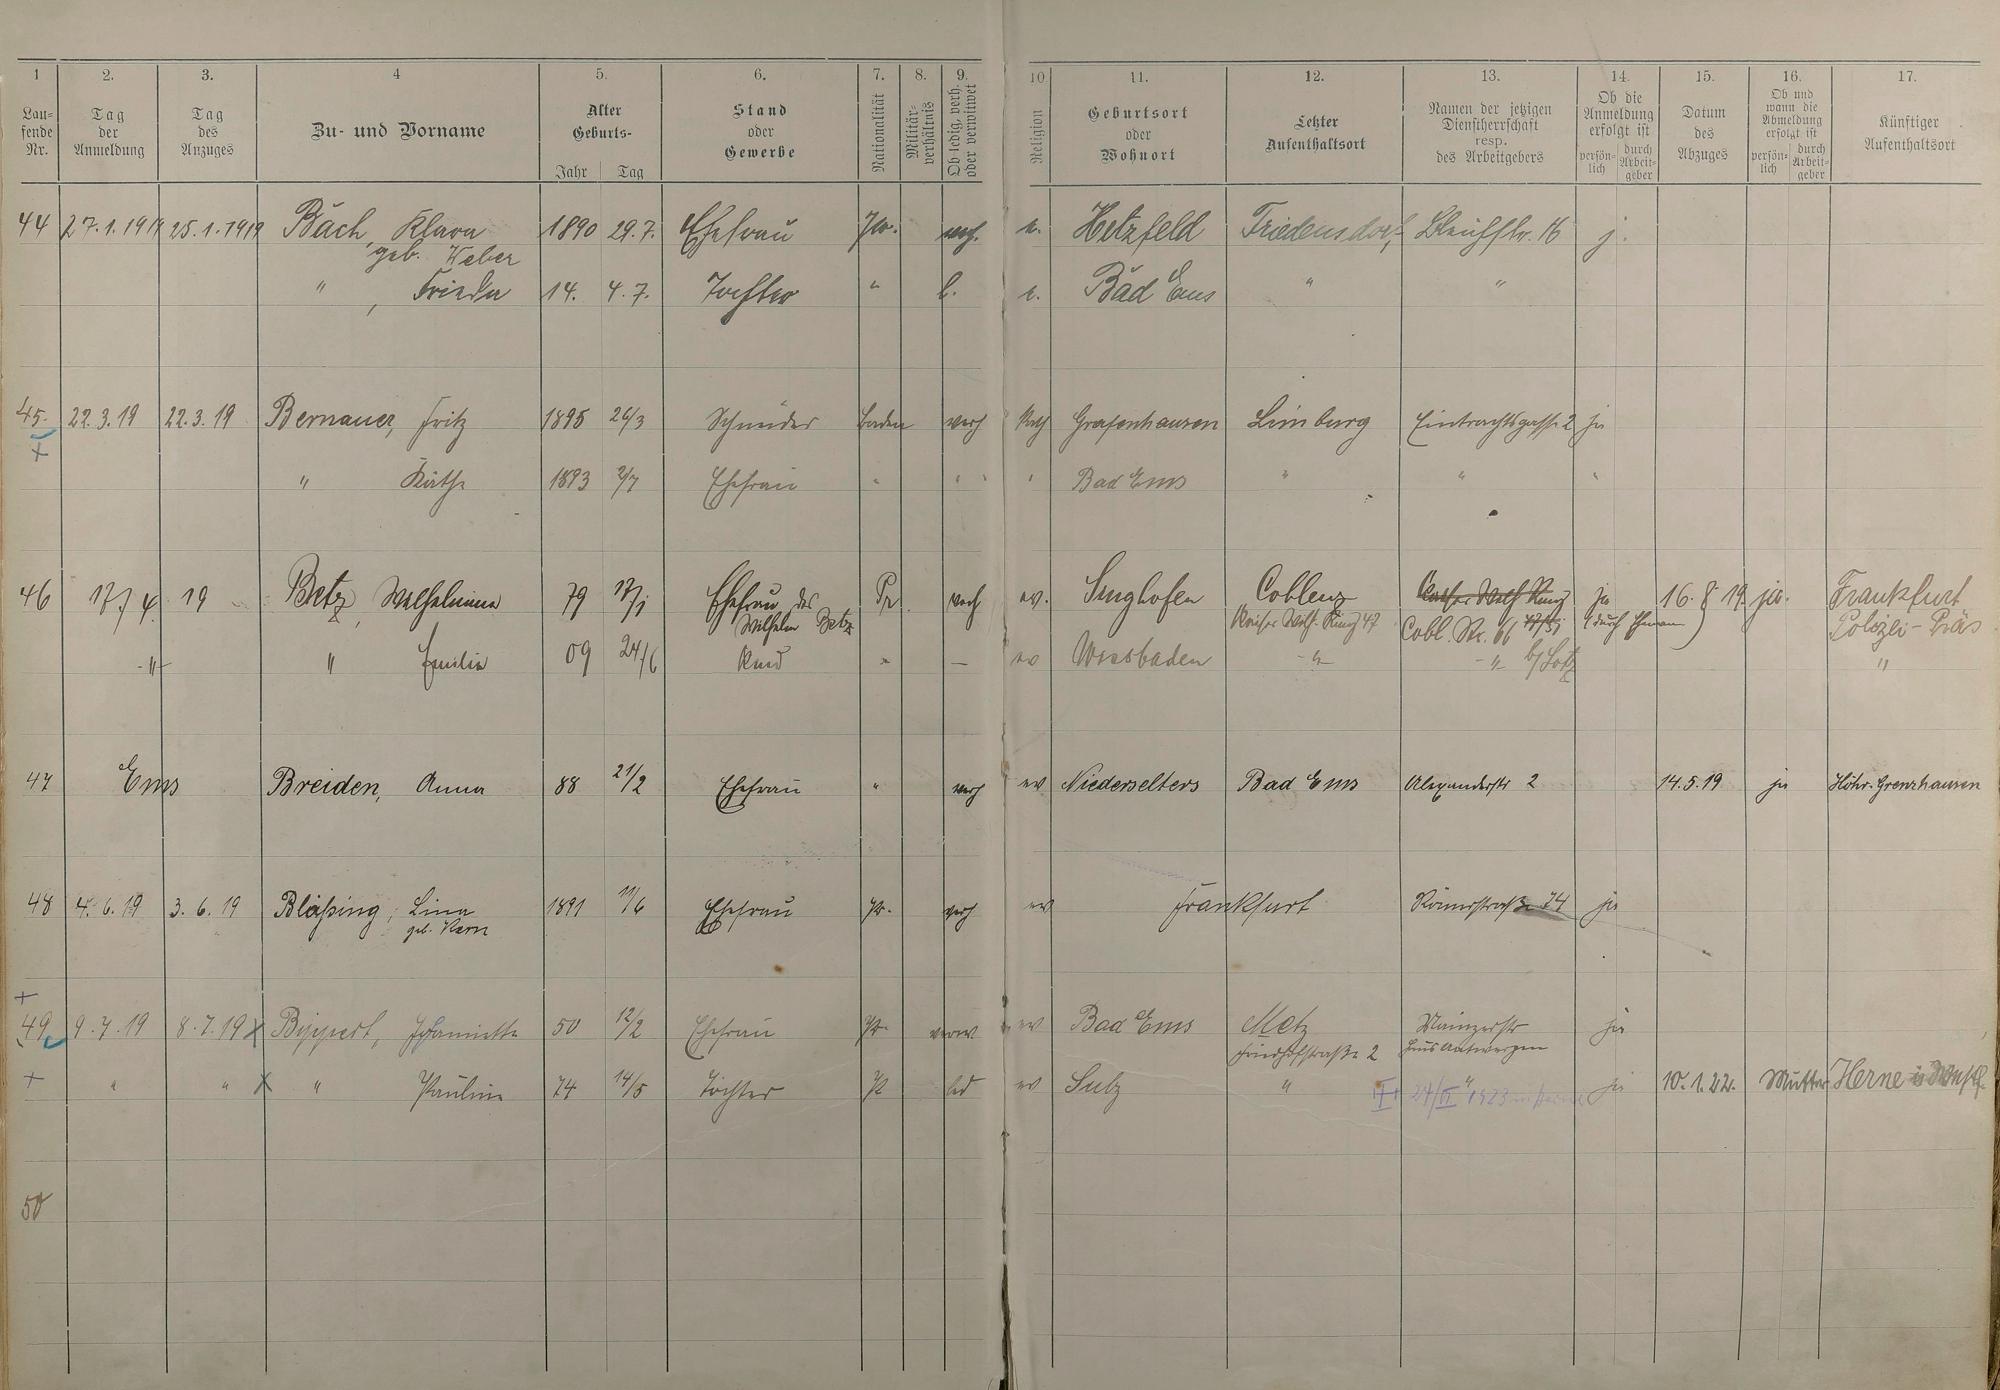 1 2. 3. 4 5. 6. 7. 8. 9. 10 11. 12. 13. 14. 15. 16. 17.
Lau-
fende
Nr.
Tag
der
Anmeldung
Tag
des
Anzuges
Zu- und Vorname
Alter
Geburts-
Jahr Tag
Stand
oder
Gewerbe
Nationalität
Militär-
verhältnis
Ob ledig, verh.
oder verwitwet
Religion
Geburtsort
oder
Wohnort
Letzter
Aufenthaltsort
Namen der jetzigen
Dienstherrschaft
resp.
des Arbeitgebers
Ob die
Anmeldung
erfolgt ist
persön-
lich
durch
Arbeit-
geber
Datum
des
Abzuges
Ob und
wann die
Abmeldung
erfolgt ist
persön-
lich
durch
Arbeit-
geber
Künftiger
Aufenthaltsort
44 27.1.1919 25.1.1919 Bach, Klara 1890 29.7. Ehefrau Pr. verh. e. Hetzfeld Friedensdorf 16 j.
geb. Weber
" , Frieda 14. 4.7. Tochter " l. e. Bad Ems " "
45. 22.3.19 22.3.19 Bernauer, Fritz 1895 26/3 Schneider Baden verh Kath Grafenhausen Limburg Eintrachtsgasse 2 ja
" Käthe 1893 2/7 Ehefrau " " " " Bad Ems " " "
46 17/4. 19 Betz, Wilhelmine 79 17/1 Ehefrau des Pr verh ev. Singhofen Coblenz Kaiser Wilh Ring ja 16.8.19. ja. Frankfurt
Wilhelm Betz Kaiser Wilh. Ring 47 Cobl. Str. 66 Polizei-Präs
-"- " Emilie 09 24/6 Kind " — ev Wiesbaden -"- -"- b/Lotz "
47 Ems Breiden, Anna 88 21/2 Ehefrau " verh ev Niederselters Bad Ems Alexanderstr 2 14.5.19 ja Höhr-Grenzhausen
48 4.6.19 3.6.19 Bläßing, Lina 1891 11/6 Ehefrau Pr. verh ev Frankfurt Römerstraße 74 ja
geb. Kern
49 9.7.19 8.7.19 Bippert, Johannette 50 12/2 Ehefrau Pr. verw ev Bad Ems Metz Mainzerstr ja
Friedhofstraße 2 Haus Antwerpen
" " " Pauline 74 14/5 Tochter Pr led ev Sulz " " ja 10.1.22. Mutter Herne
24/VI 1923 in Herne
50